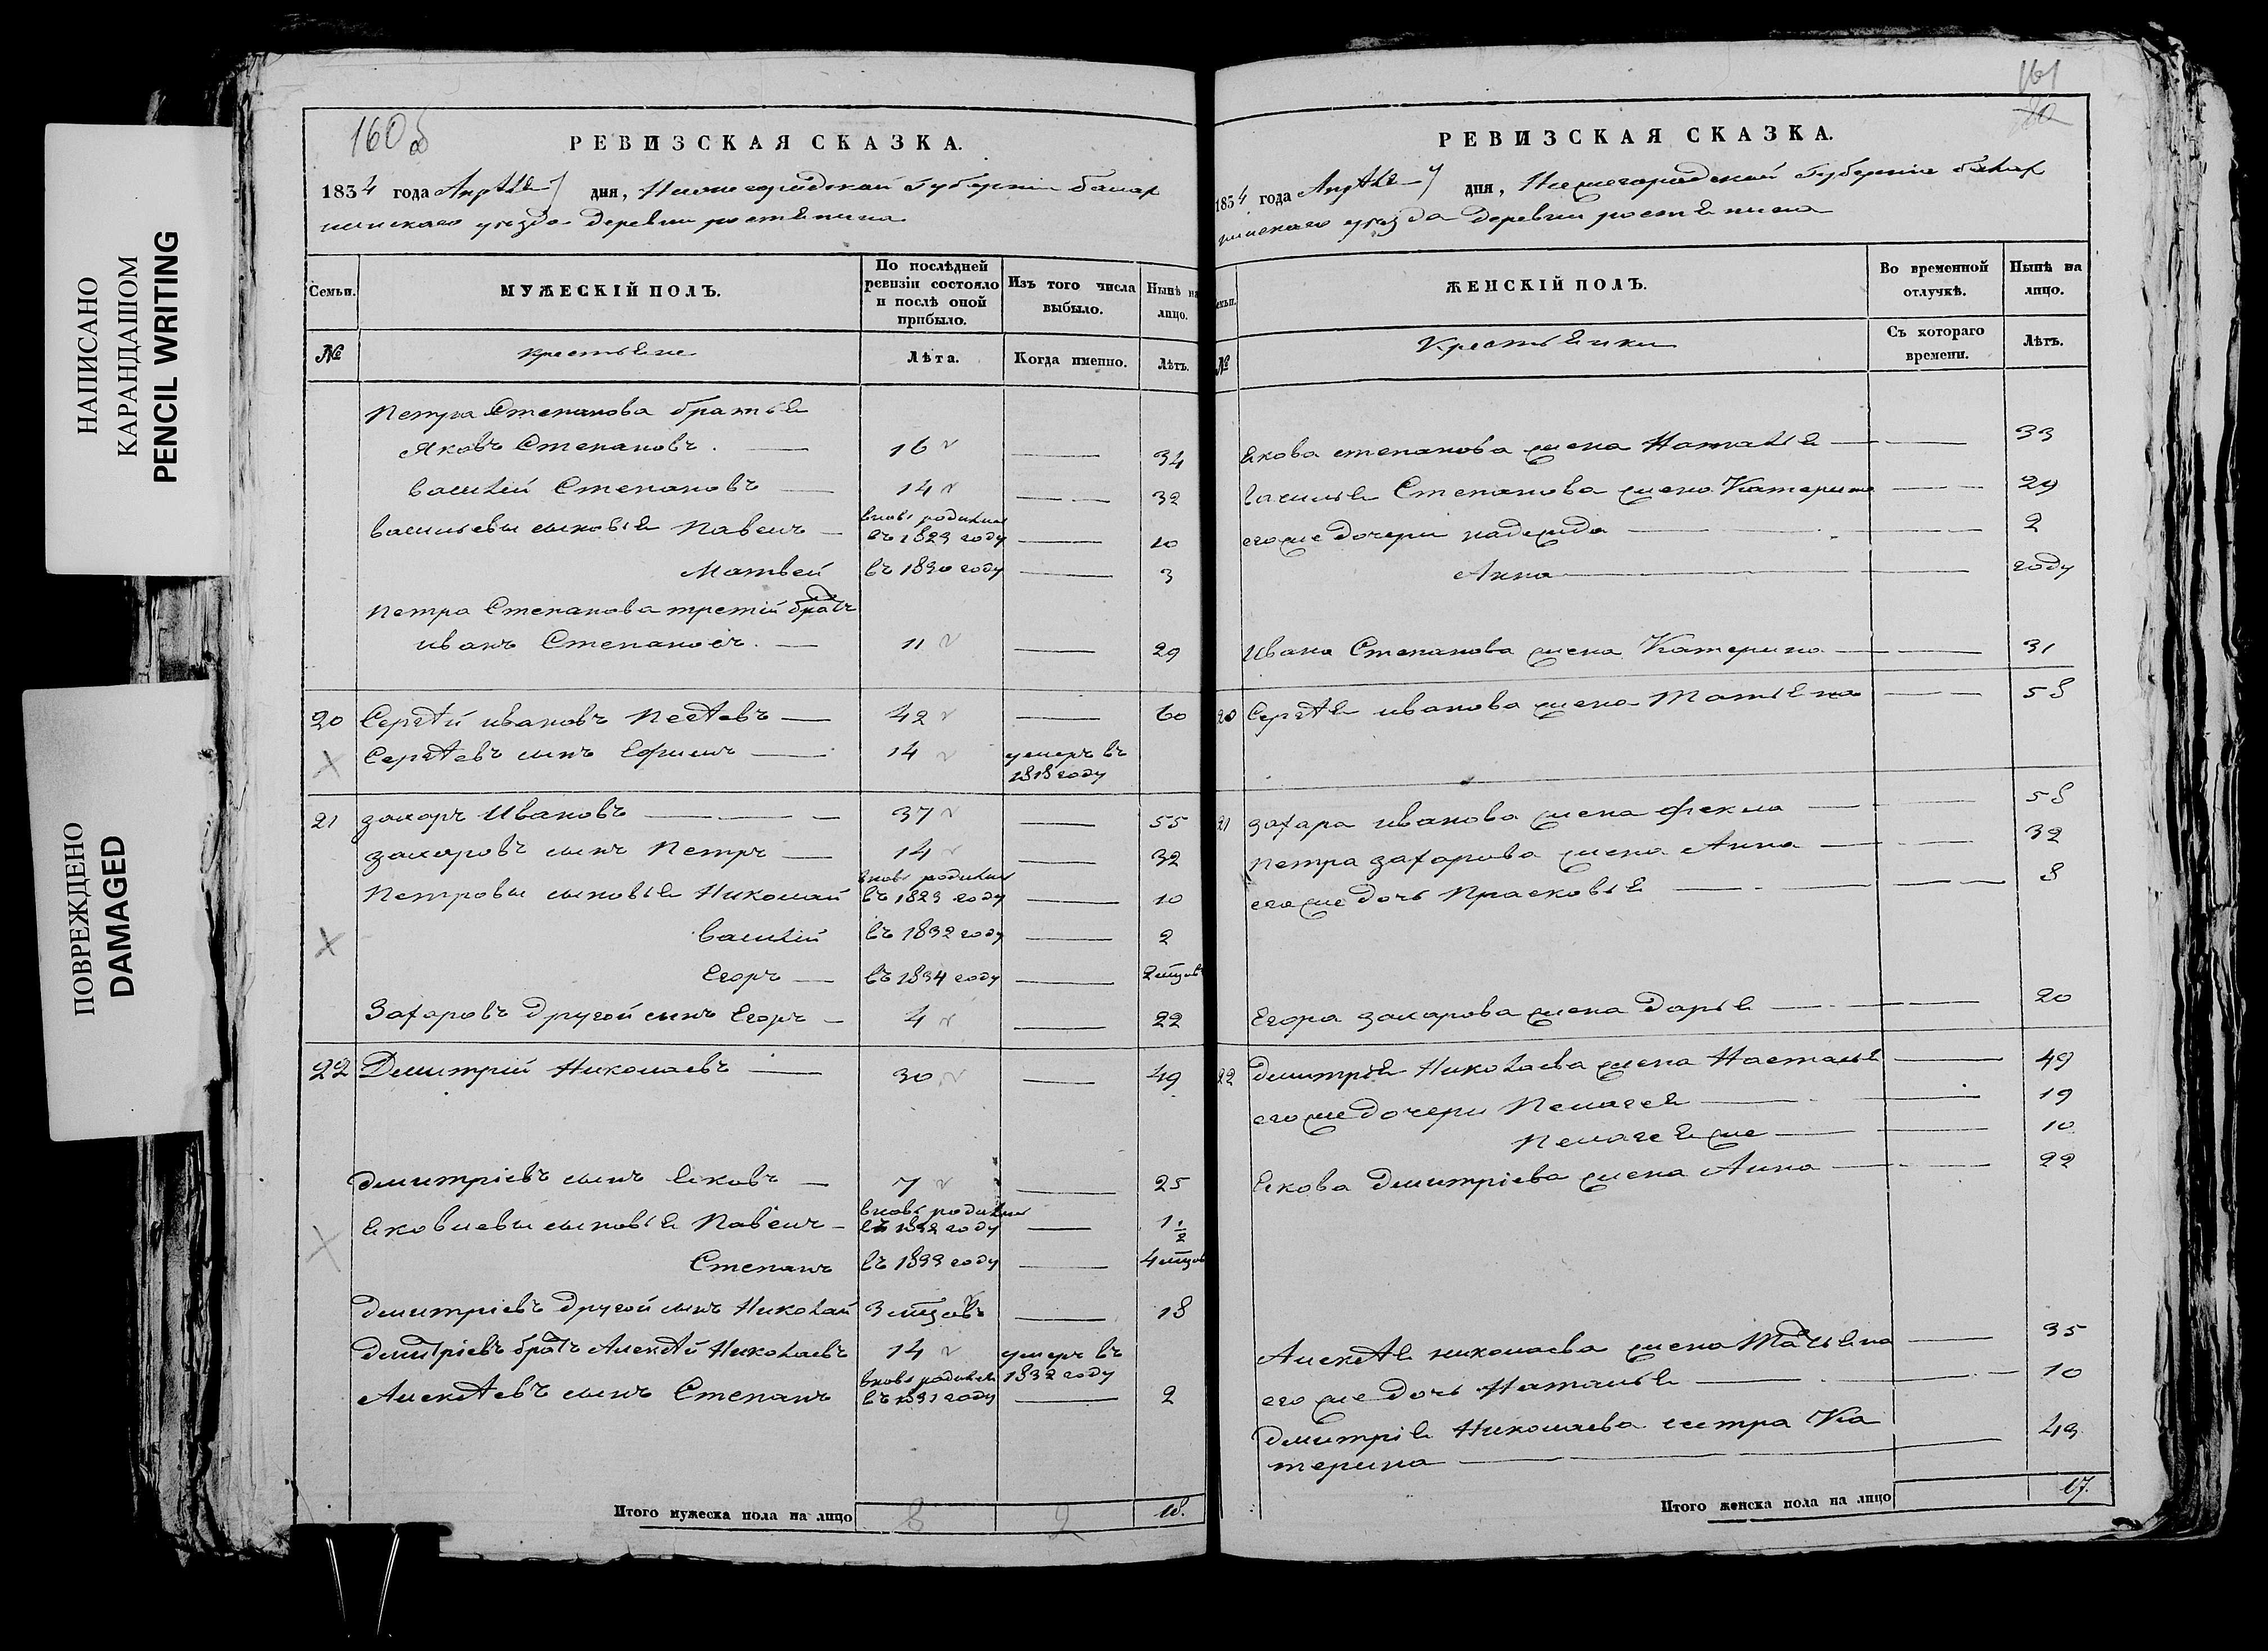 НАПИСАНО
КАРАНДАШОМ
PENCIL WRITING
ПОВРЕЖДЕНО
DAMAGED
160об
РЕВИЗСКАЯ СКАЗКА.
1834 года Апрѣля 7 дня, Нижегородской Губерніи балах
нинскаго уезда деревни ростяпина
Семьи. МУЖЕСКІЙ ПОЛЪ. По послѣдней ревизіи состояло и послѣ оной прибыло. Изъ того числа выбыло. Нынѣ на лицо.
№ крестьяне Лѣта. Когда именно. Лѣтъ.
Петра Степанова братья
Яковъ Степановъ. 16 34
василей Степановъ 14 32
васильевы сыновья Павелъ вновь родился въ 1823 году 10
Матвей въ 1830 году 3
Петра Степанова третій братъ
иванъ Степановъ. 11 29
20 Сергѣй ивановъ 42 60
Сергѣевъ сынъ Ефимъ 14 умеръ въ 1818 году
21 захаръ Ивановъ 37 55
захаровъ сынъ Петръ 14 32
Петровы сыновья Николай вновь родился въ 1823 году 10
василей въ 1832 году 2
Егоръ въ 1834 году 2 мцов
Захаровъ другой сынъ Егоръ 4 22
22 Дмитрій Николаевъ 30 49
дмитріевъ сынъ яковъ 7 25
яковлевы сыновья Павелъ вновь родился въ 1832 году 1 1/2
Степанъ въ 1833 году 4 мцов
дмитріевъ другой сынъ Николай 3 мцовъ 18
дмитріевъ братъ Алексѣй Николаевъ 14 умеръ въ 1832 году
Алексѣевъ сынъ Степанъ вновь родился въ 1831 году 2
Итого мужеска пола на лицо 8 2 18.
161
РЕВИЗСКАЯ СКАЗКА.
1834 года Апрѣля 7 дня, Нижегородской Губерніи балах
нинскаго уезда деревни ростяпина
Семьи. ЖЕНСКІЙ ПОЛЪ. Во временной отлучкѣ. Нынѣ на лицо.
№ Крестьянки Съ котораго времени. Лѣтъ.
якова степанова жена Наталья 33
василья Степанова жена Катерина 29
его же дочери надежда 2
Анна году
Ивана Степанова жена Катерина 31
20 Сергѣя иванова жена Татьяна 58
21 захара иванова жена фекла 58
петра захарова жена Анна 32
его же дочь Прасковья 8
Егора захарова жена Дарья 20
22 дмитрія Николаева жена Настасья 49
его же дочери Пелагея 19
Пелагея же 10
якова дмитріева жена Анна 22
Алексѣя николаева жена Татьяна 35
его же дочь Наталья 10
дмитрія Николаева сестра Ка
терина 43
Итого женска пола на лицо 17.